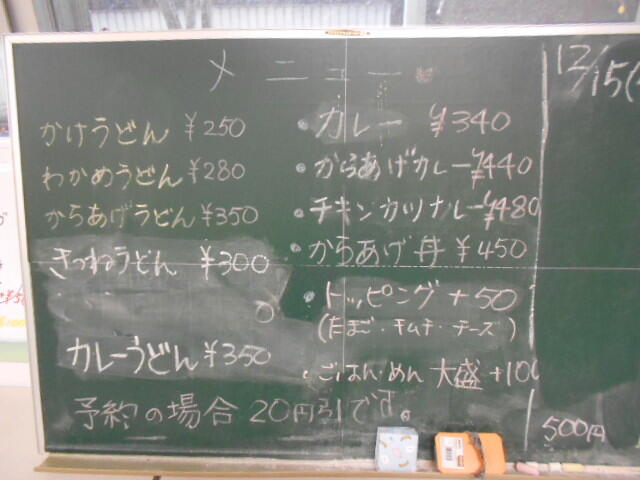 メニュー
かけうどん ¥250
わかめうどん ¥280
からあげうどん ¥350
きつねうどん ¥300
カレーうどん ¥350
・カレー ¥340
・からあげカレー ¥440
・チキンカツカレー ¥480
・からあげ丼 ¥450
・トッピング +50
(たまご・キムチ・チーズ)
・ごはん・めん 大盛 +100
予約の場合 20円引です。
12/15(
500円